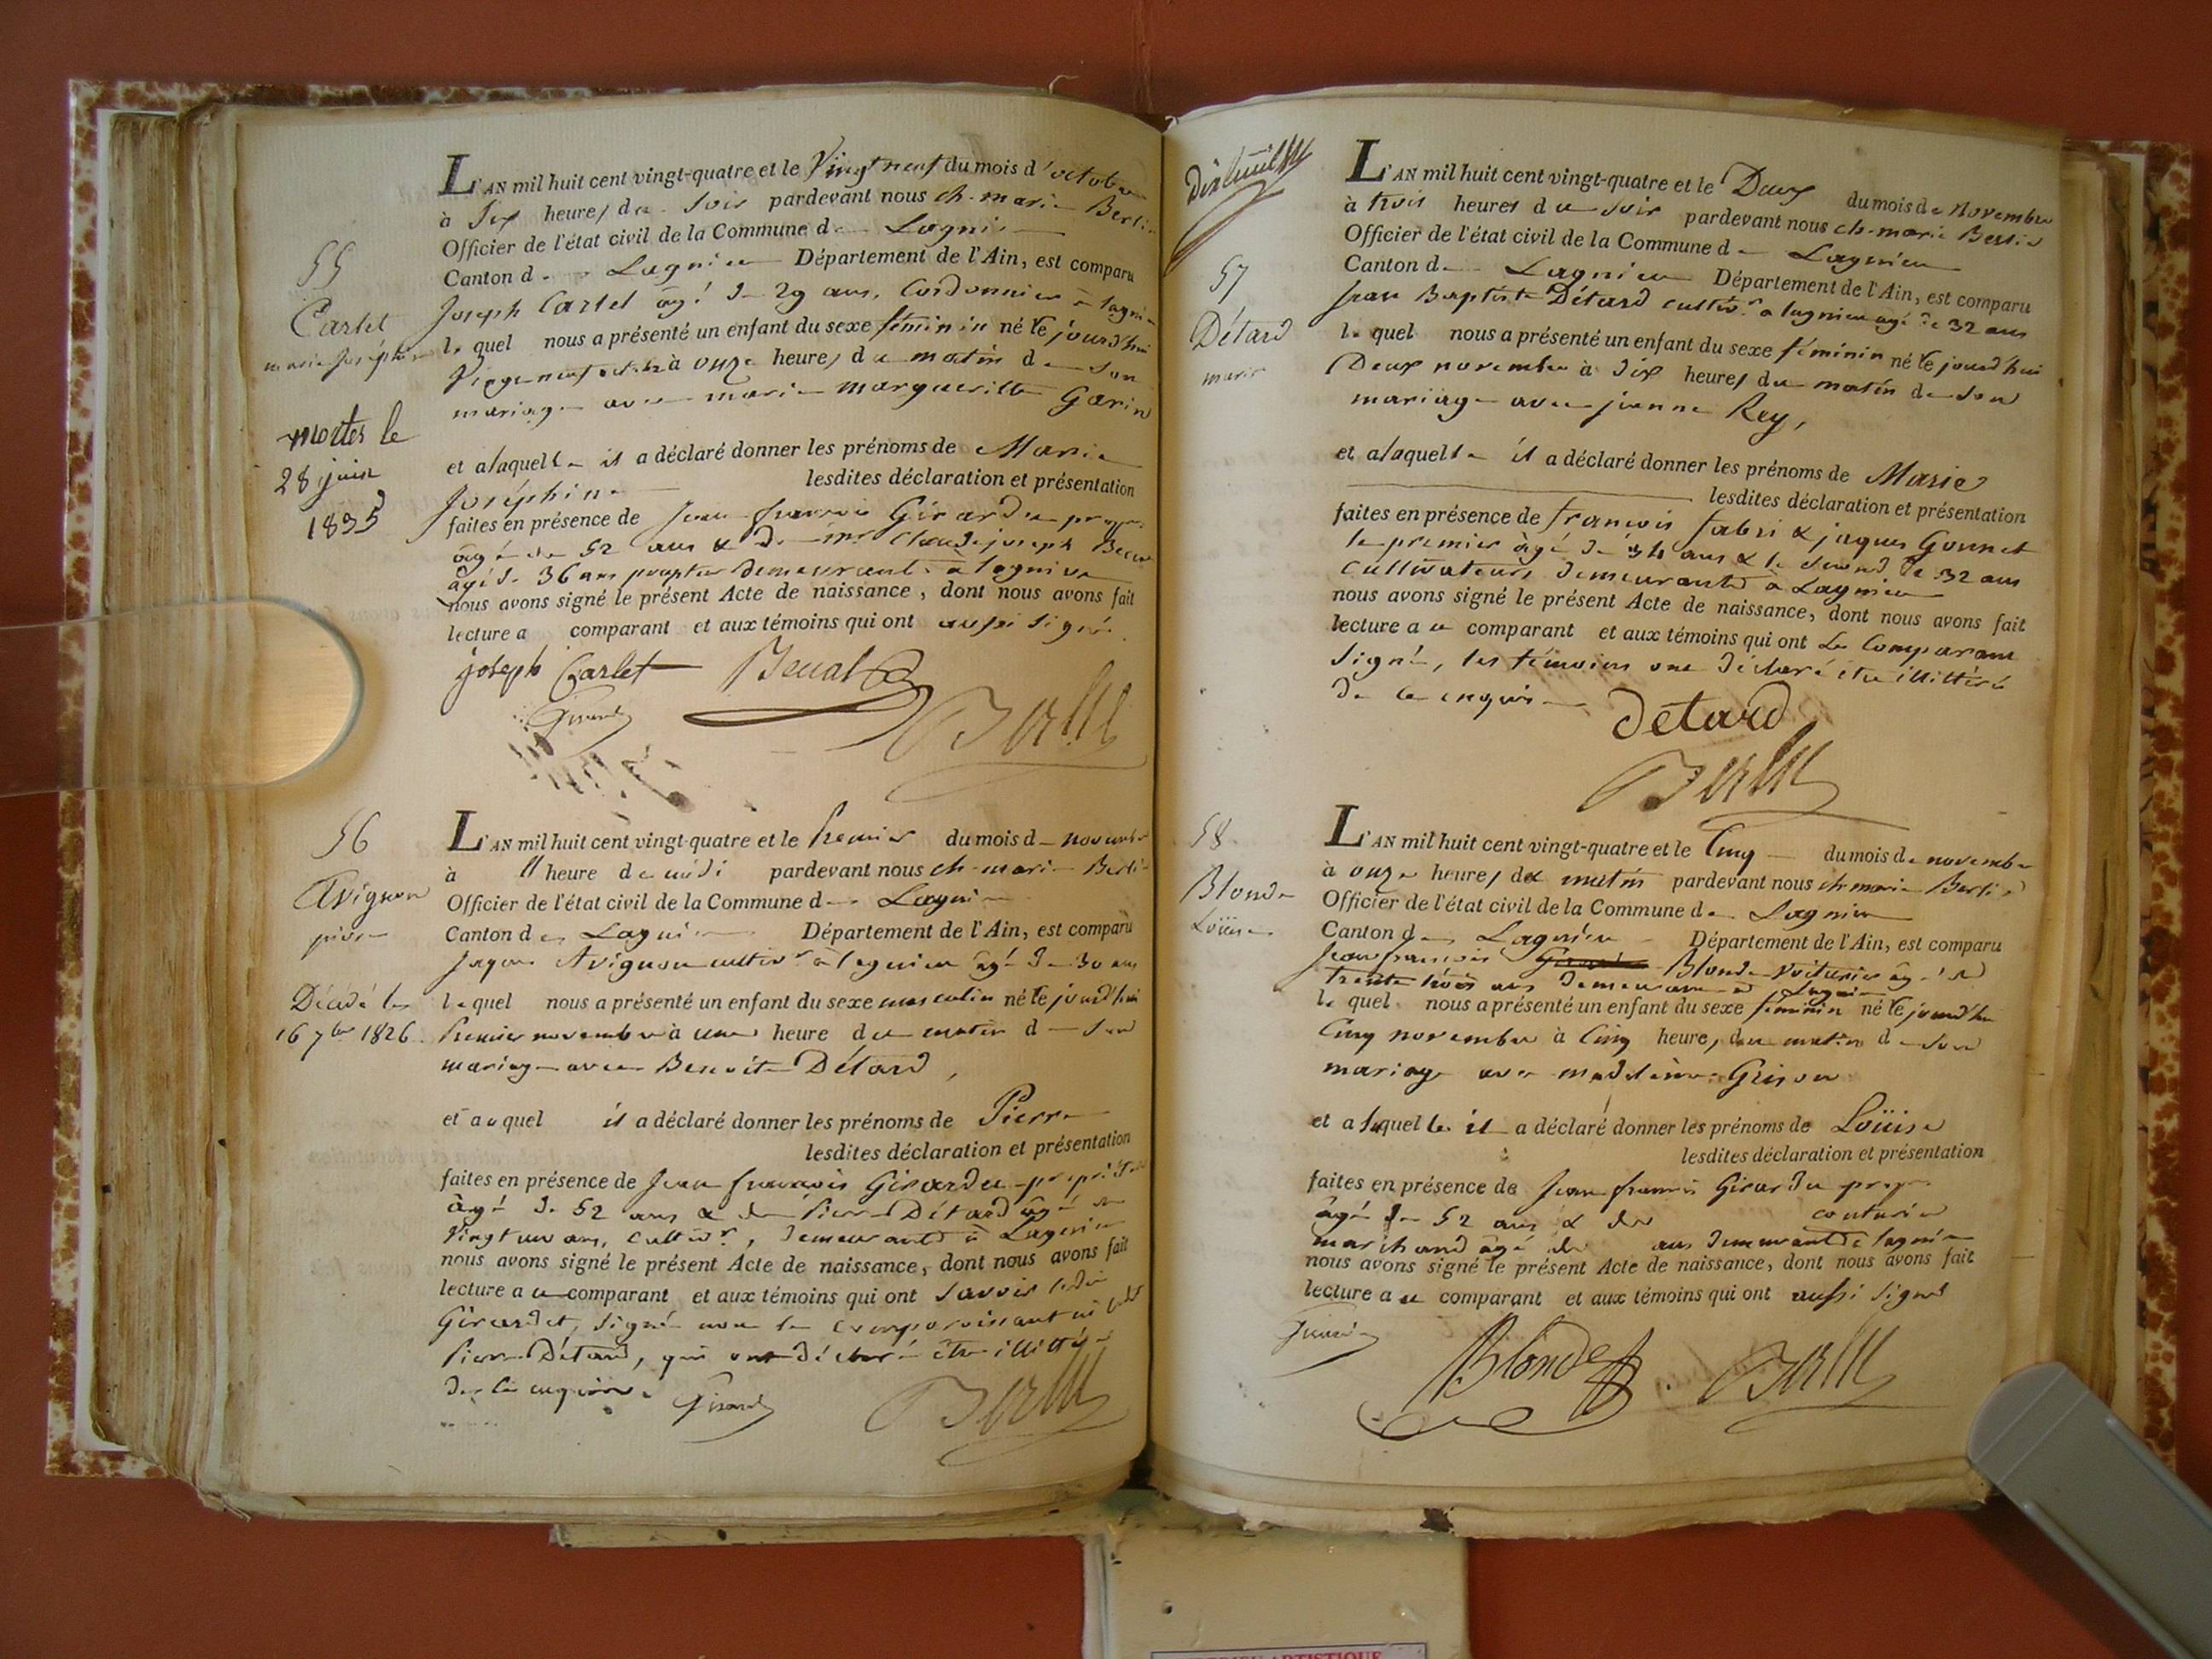 55
Carlet
marie Joséphine
mortes le
28 juin
1835
L'AN mil huit cent vingt-quatre et le Vingt neuf du mois d'octobre
à Six heures du Soir pardevant nous ch-marie Berli
Officier de l'état civil de la Commune de Lagnieu
Canton de Lagnieu Département de l'Ain, est comparu
Joseph Carlet âgé de 29 ans, Cordonnier à lagnieu
le quel nous a présenté un enfant du sexe féminin né le jourd'hui
à onze heures du matin de Son
mariage avec marie margueritte Garin
et a laquelle il a déclaré donner les prénoms de Marie
Joséphine lesdites déclaration et présentation
faites en présence de Jean françois Girardu propre
âgé de 52 ans & de Claude joseph
âgé de 36 ans demeurants à lagnieu
nous avons signé le présent Acte de naissance, dont nous avons fait
lecture a comparant et aux témoins qui ont aussi signé
joseph Carlet
56
Avignon
pierre
Décédé le
16 7bre 1826
L'AN mil huit cent vingt-quatre et le Premier du mois de novembre
à " heure de midi pardevant nous ch-marie Berli
Officier de l'état civil de la Commune de Lagnieu
Canton de Lagnieu Département de l'Ain, est comparu
Jaques Avignon cultivr à lagnieu âgé de 30 ans
le quel nous a présenté un enfant du sexe masculin né le jourd'hui
Premier novembre à une heure du matin de Son
mariage avec Benoite Détard,
et au quel il a déclaré donner les prénoms de Pierre
lesdites déclaration et présentation
faites en présence de Jean françois Girardu
âgé de 52 ans & de Pierre Détard âgé de
Vingt un ans, cultivr, demeurants à Lagnieu
nous avons signé le présent Acte de naissance, dont nous avons fait
lecture au comparant et aux témoins qui ont Savoir ledit
Girardet, Signé non le comparaissant ni ledit
Pierre Détard, qui ont déclaré être illittérés
de ce enquis
Dixhuit
57
Détard
marie
L'AN mil huit cent vingt-quatre et le Deux du mois de Novembre
à trois heures du soir pardevant nous ch-marie Berli
Officier de l'état civil de la Commune de Lagnieu
Canton de Lagnieu Département de l'Ain, est comparu
Jean Baptiste Détard cultivr à lagnieu âgé de 32 ans
le quel nous a présenté un enfant du sexe féminin né le jourd'hui
Deux novembre à Dix heures du matin de Son
mariage avec jeanne Rey,
et a laquelle il a déclaré donner les prénoms de Marie
lesdites déclaration et présentation
faites en présence de françois fabri & jaques Gonnet
le premier âgé de 34 ans & le second de 32 ans
Cultivateurs demeurants à Lagnieu
nous avons signé le présent Acte de naissance, dont nous avons fait
lecture au comparant et aux témoins qui ont Le Comparant
Signé, les témoins ont déclaré être illittérés
de ce enquis
Detard
58
Blonde
Loüise
L'AN mil huit cent vingt-quatre et le Cinq du mois de novembre
à onze heures du matin pardevant nous ch-marie Berli
Officier de l'état civil de la Commune de Lagnieu
Canton de Lagnieu Département de l'Ain, est comparu
Jean françois Blonde Voiturier âgé de
trente trois ans demeurant à Lagnieu
le quel nous a présenté un enfant du sexe féminin né le jourd'hui
Cinq novembre à Cinq heures du matin de Son
mariage avec madeleine Grison
et a laquelle il a déclaré donner les prénoms de Loüise
lesdites déclaration et présentation
faites en présence de Jean françois Girardu propre
âgé de 52 ans & de
marchand âgé de ans demeurants à lagnieu
nous avons signé le présent Acte de naissance, dont nous avons fait
lecture au comparant et aux témoins qui ont aussi Signé
Blonde